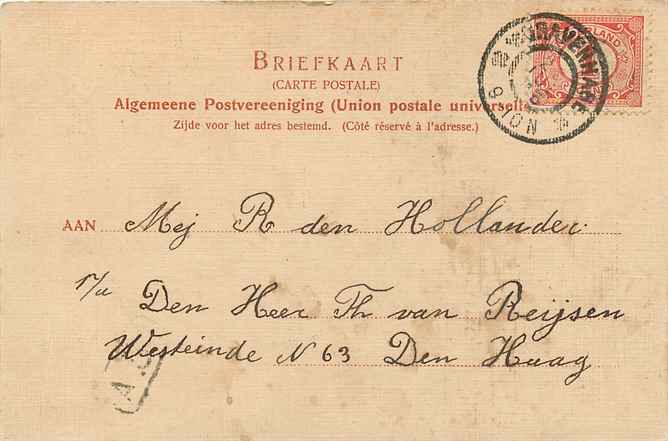 BRIEFKAART
(CARTE POSTALE)
Algemeene Postvereeniging (Union postale universelle)
Zijde voor het adres bestemd. (Côté réservé à l'adresse.)
'SGRAVENHAGE
AAN Mej R den Hollander
p/a Den Heer Th van Reijsen
Westeinde N 63 Den Haag